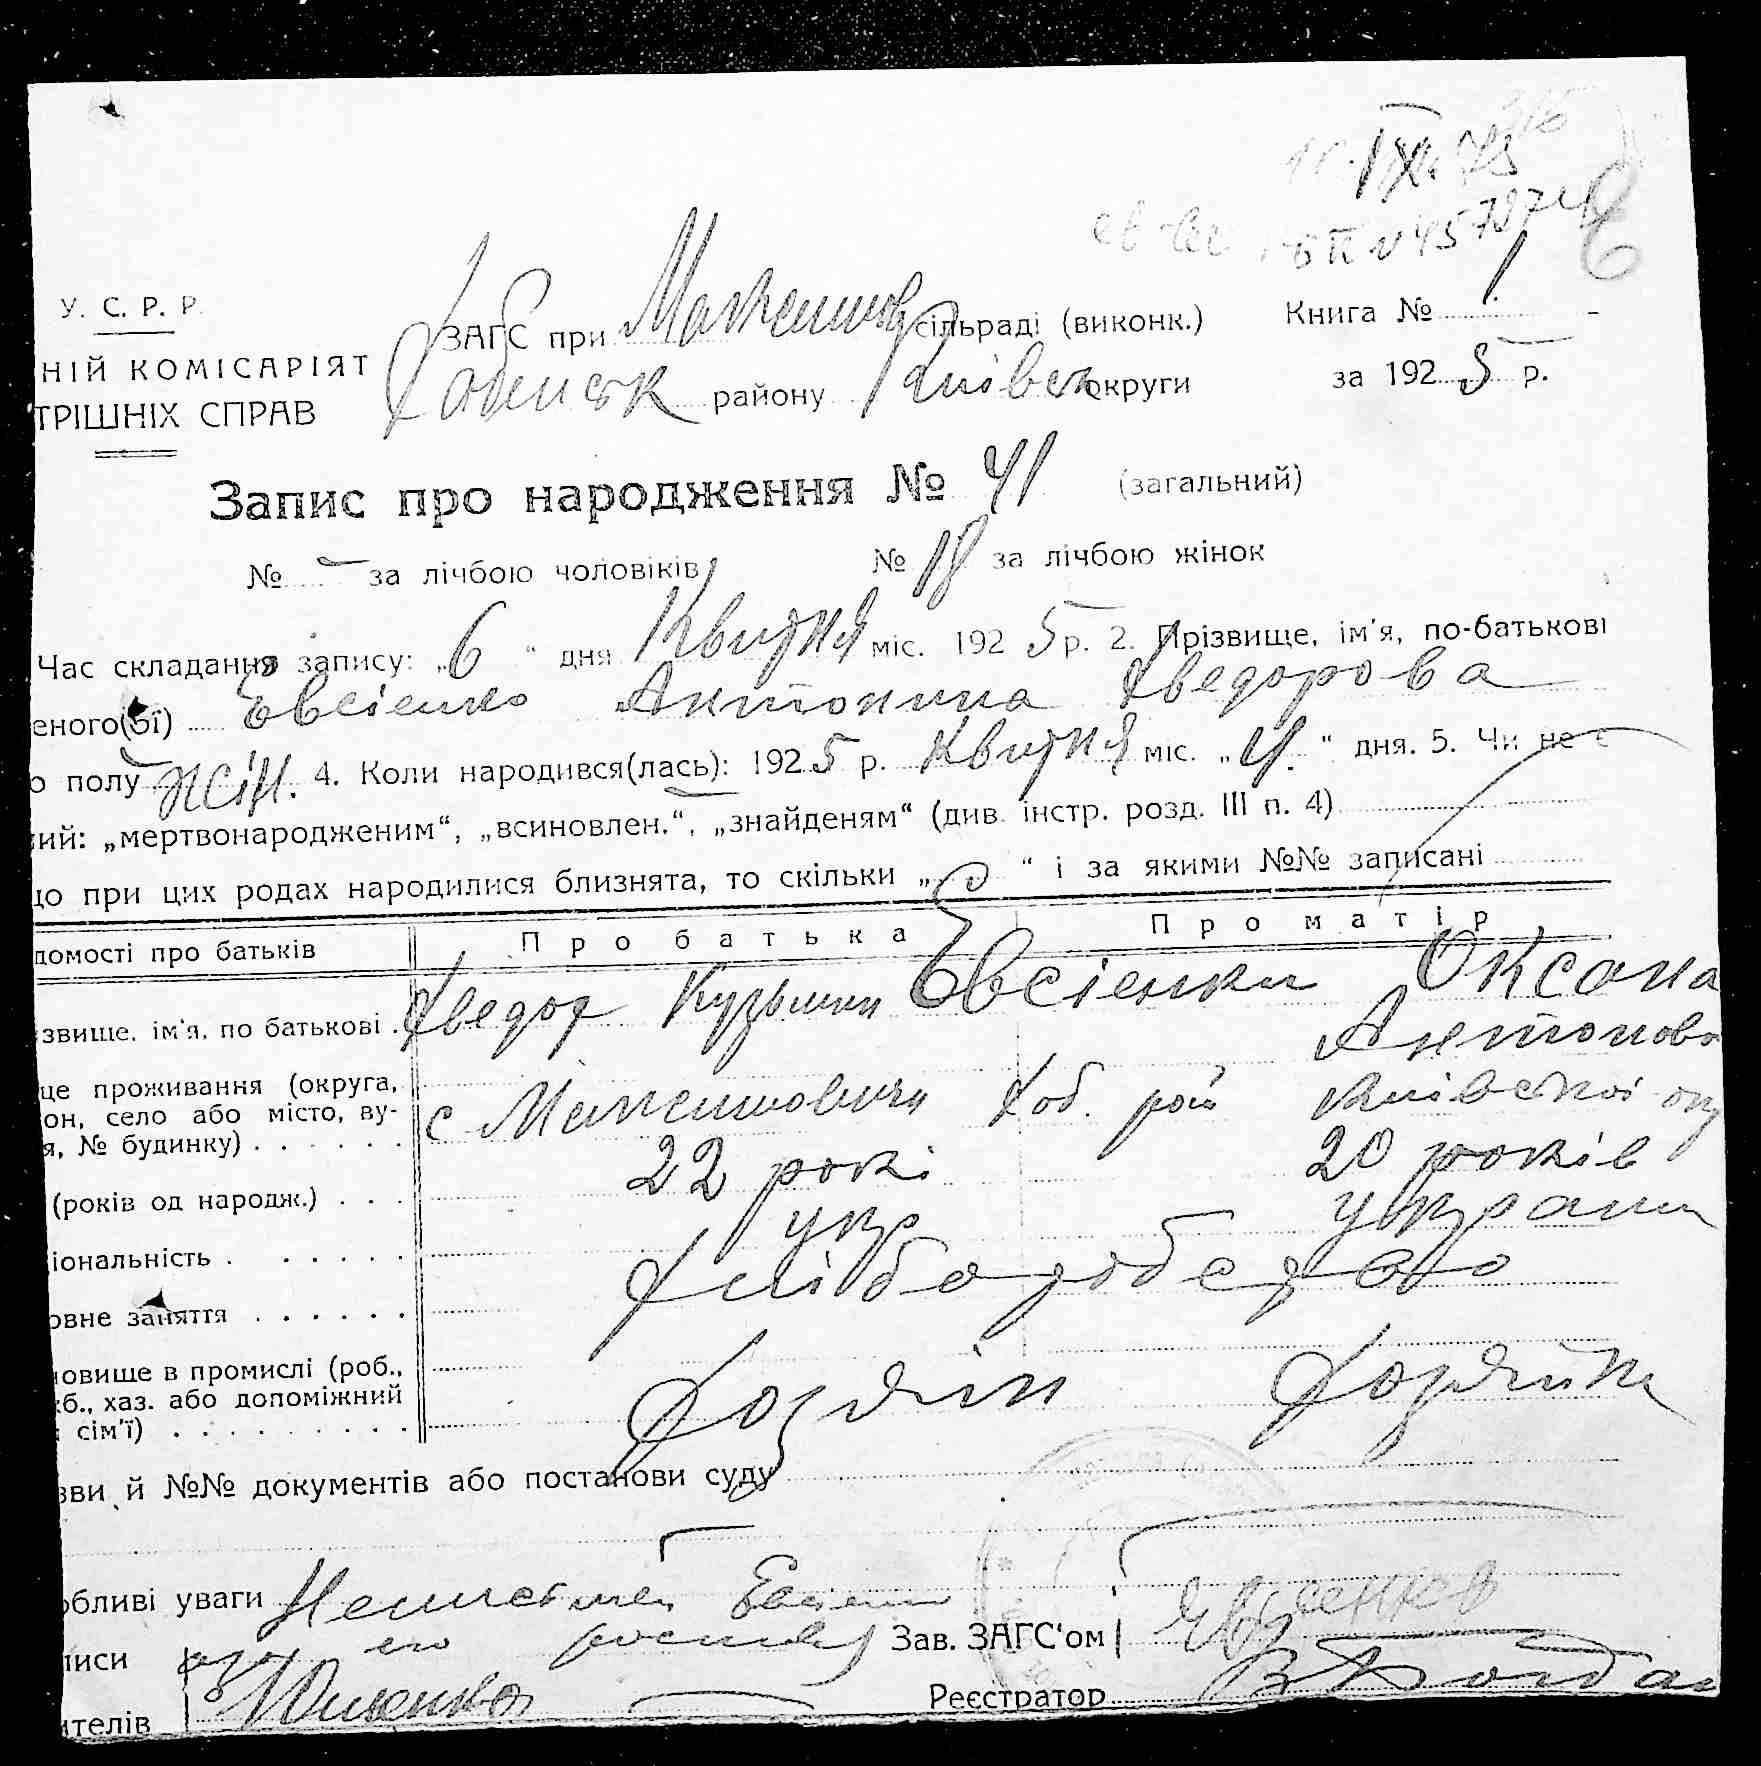 У. С. Р. Р.
НІЙ КОМІСАРІЯТ
ТРІШНІХ СПРАВ
ЗАГС при сільраді (виконк.)
району Київськ округи
Книга № 1
за 1925 р.
Запис про народження № 41 (загальний)
№ - за лічбою чоловіків № 18 за лічбою жінок
Час складання запису: „6" дня Квітня міс. 1925 р. 2. Прізвище, ім'я, по-батькові
еного(ої) Евсіенко Антонина Хведорова
о полу жін. 4. Коли народився(лась): 1925 р. Квітня міс. „4." дня. 5. Чи не є
ий: „мертвонародженим", „всиновлен.", „знайденям" (див. інстр. розд. III п. 4)
що при цих родах народилися близнята, то скільки „ " і за якими №№ записані
домості про батьків Про батька Про матір
звище, ім'я, по батькові . Хведор Кузьмин Евсіенки Оксана
Антонова
це проживання (округа,
он, село або місто, ву-
я, № будинку) . . . . . . с Хоб. рай Київської окр
(років од народж.) . . . 22 рокі 20 років
іональність . . . . . . укр украин
овне заняття . . . . . . Хліборобство
новище в промислі (роб.,
жб., хаз. або допоміжний
сім'ї) . . . . . . . . . Хозяін Хозяйка
зви й №№ документів або постанови суду
обливі уваги
писи Зав. ЗАГС'ом Евсіенков
ителів Реєстратор